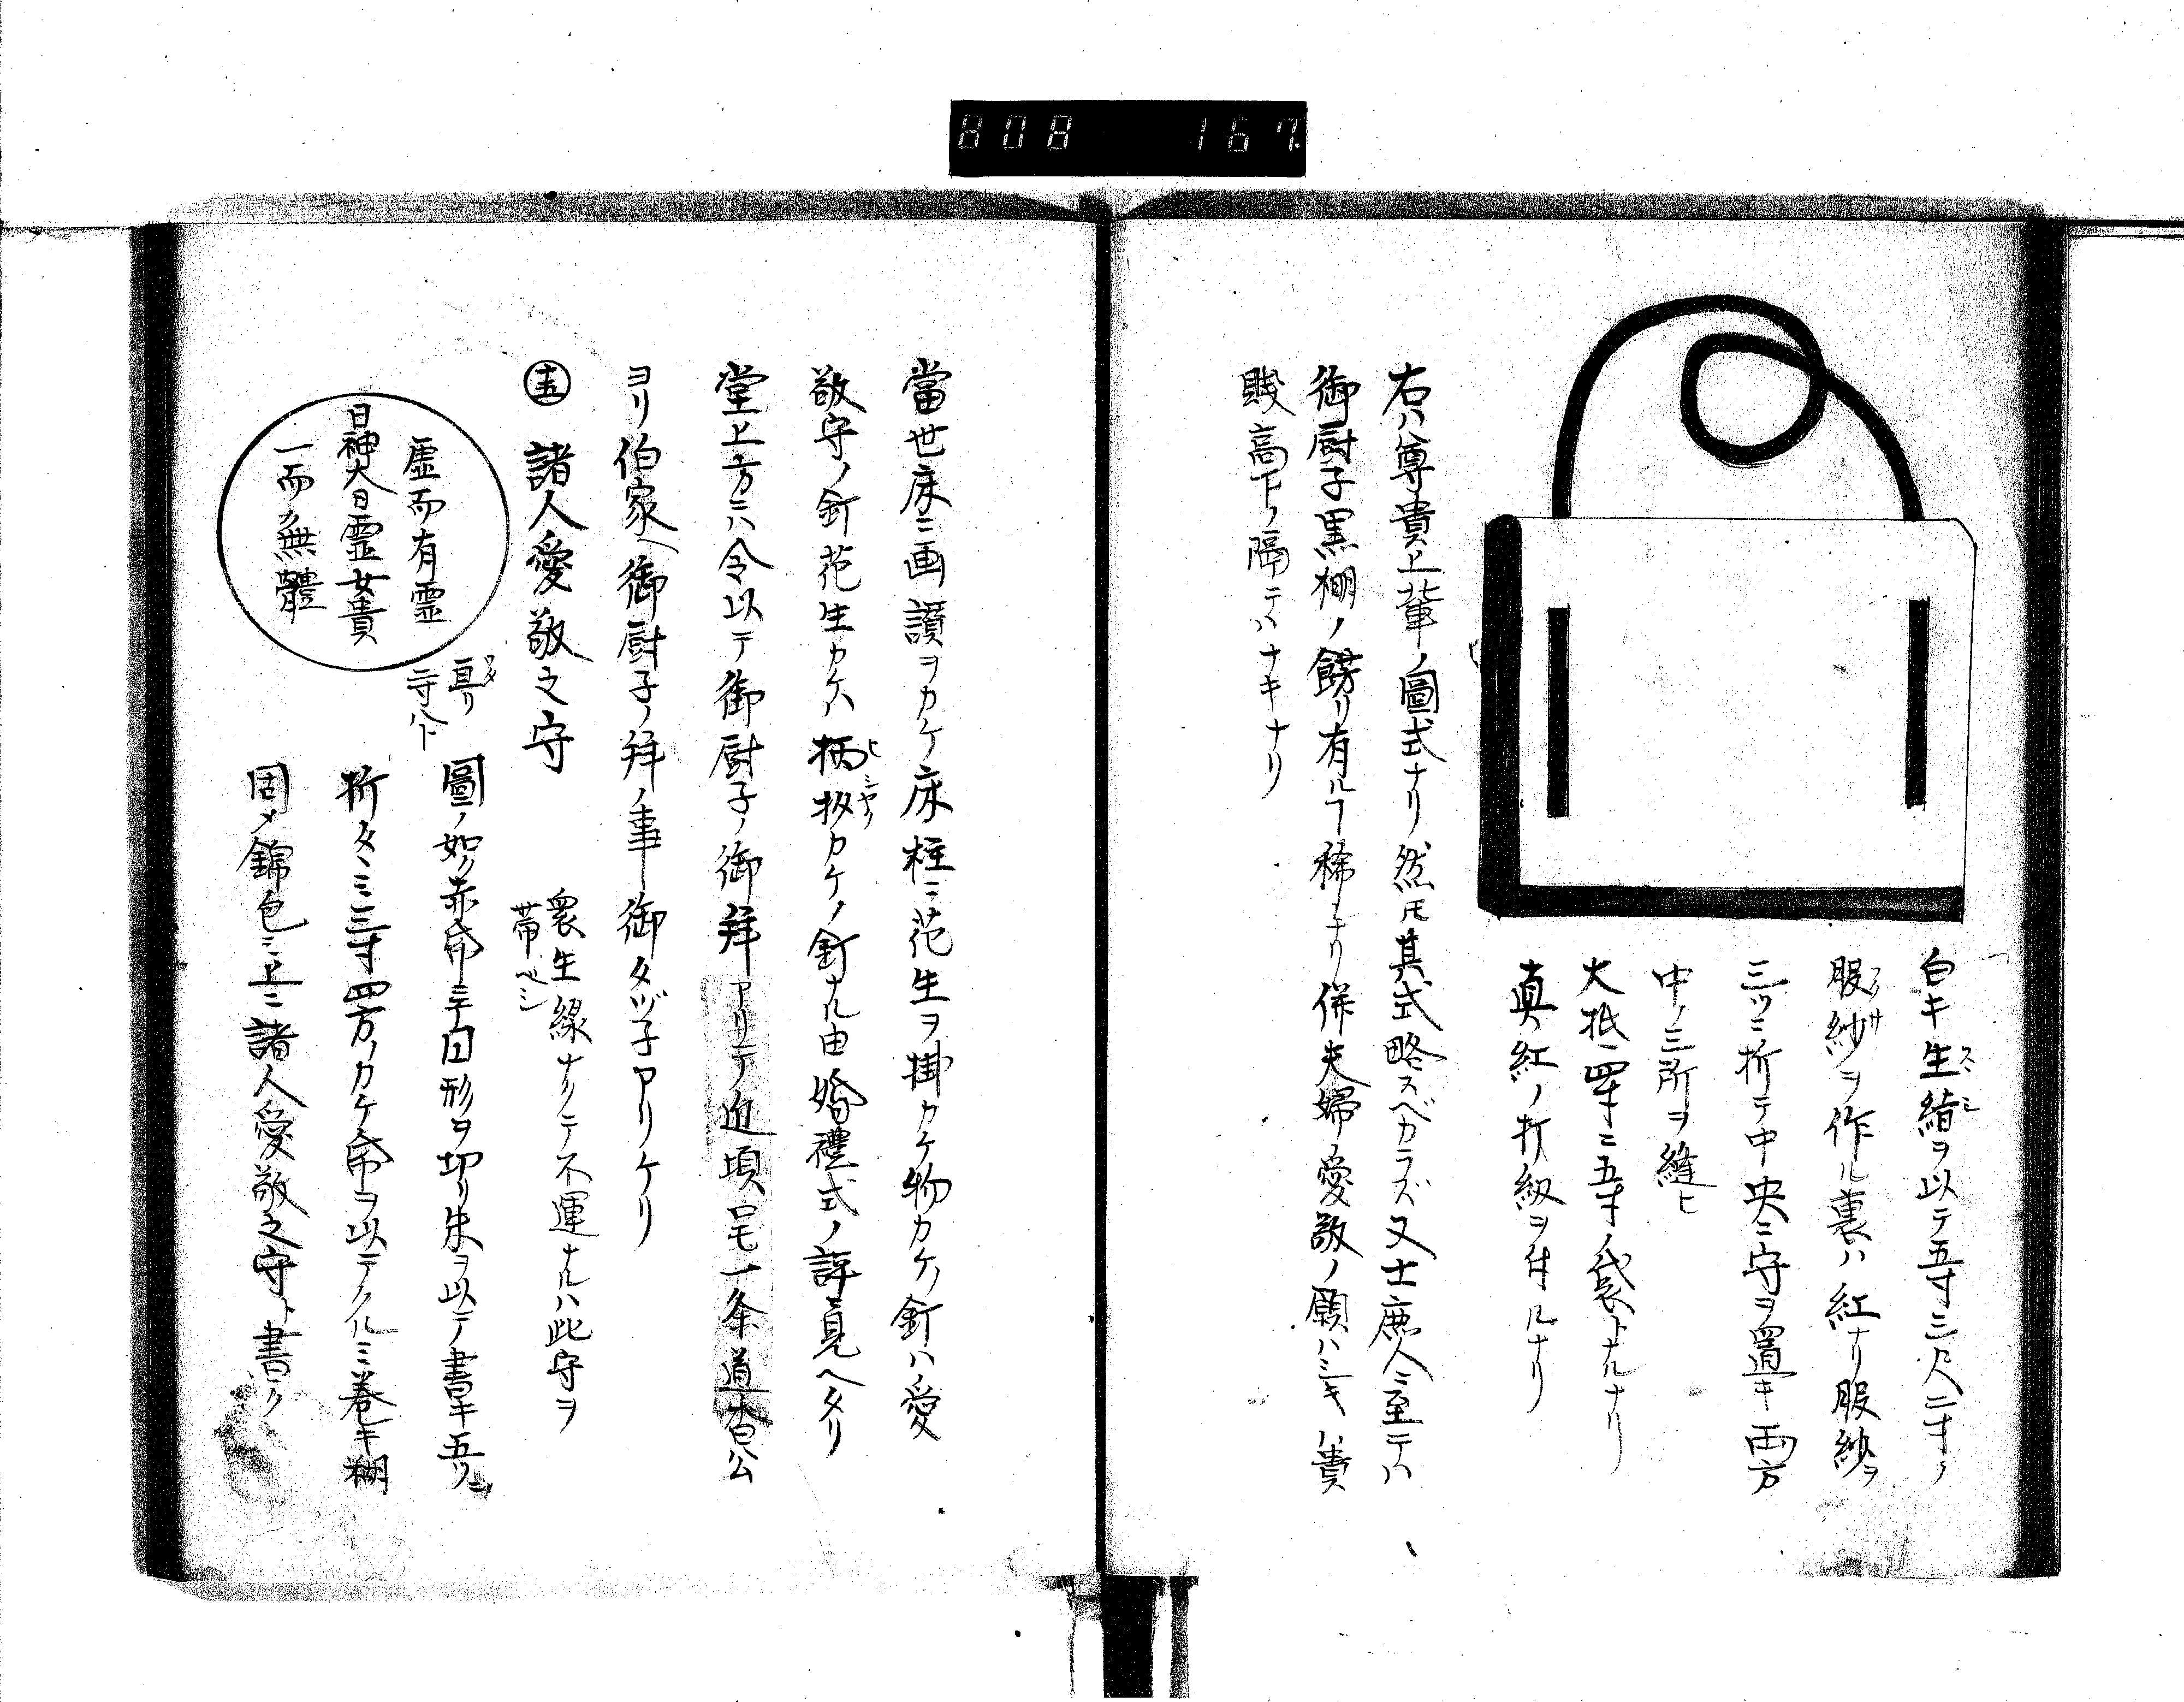 808 167
白キ生絹ヲ以テ五寸三尺二寸ノ
スヽシ
服紗ヲ作ル裏ハ紅ナリ服紗ヲ
フクサ
三ツニ折テ中央ニ守ヲ置キ両方
中ノ三所ヲ縫ヒ
大抵四寸ニ五寸ノ袋トナルナリ
真紅ノ打紐ヲ付ルナリ
右ハ尊貴上輩ノ圖式ナリ然モ其式略スベカラズ又士庶人ニ至テハ
御厨子黒棚ノ餝リ有ルヿ稀ナリ併夫婦愛敬ノ願ハシキハ貴
賎高下ノ隔テハナキナリ
當世床ニ画讃ヲカケ床柱ニ花生ヲ掛カケ物カケノ釘ハ愛
敬守ノ釘花生カケハ柄杓カケノ釘ナル由婚禮式ノ詳見ヘタリ
ヒシヤク
堂上方ニハ今以テ御厨子ノ御拜アリテ近頃モ一条道香公
ヨリ伯家ヘ御厨子ノ拜ノ事御タヅ子アリケリ
十五 諸人愛敬之守
衆生縁ナクテ不運ナルハ此守ヲ
帯ベシ
虚而有霊
日神大日霊女貴
一而無體
亘リ
二寸八ト
圖ノ如ク赤帋ニテ日形ヲ切リ朱ヲ以テ書キ五ツニ
折タヽミ三寸四方ノカケ帋ヲ以テクルミ巻キ糊
固メ錦包ミ上ニ諸人愛敬之守ト書ク